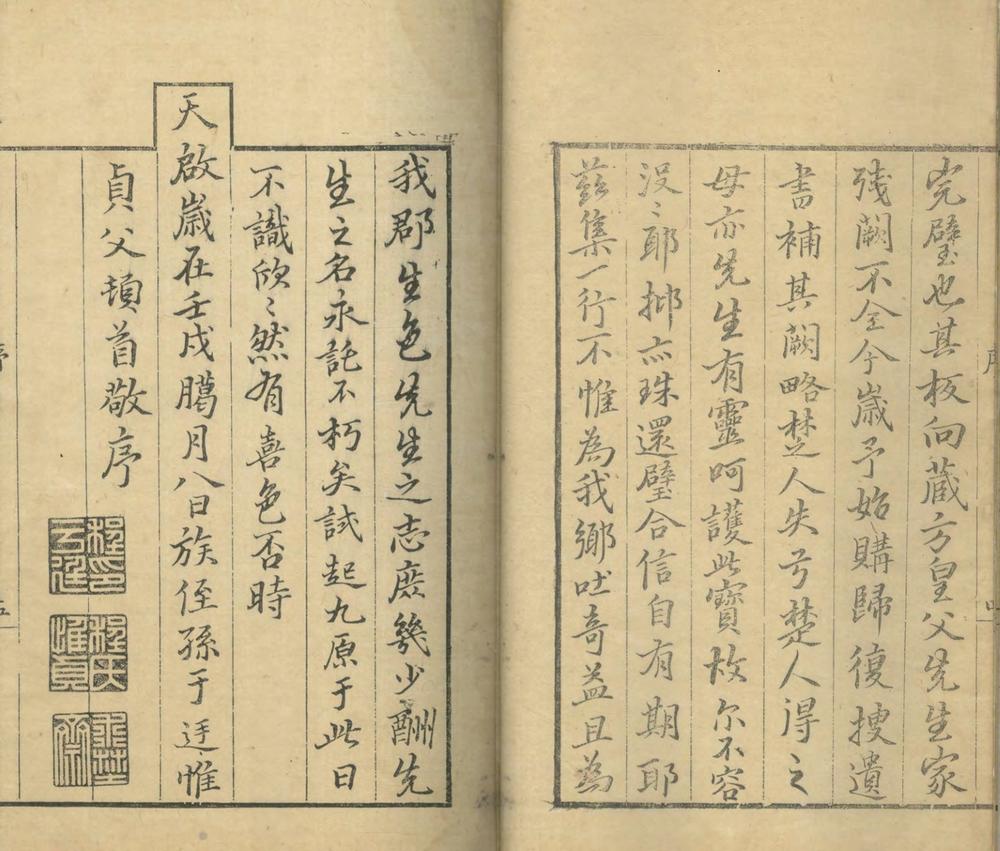 完璧也其板向藏方皇父先生家
殘闕不全今歲予始購歸復搜遺
書補其闕略楚人失弓楚人得之
毋亦先生有靈呵護此寶故尔不容
沒〻耶抑亦珠還璧合信自有期耶
茲集一行不惟為我鄉吐奇益且為
我郡生色先生之志庶幾少酬先
生之名永託不朽矣試起九原于此日
不識欣〻然有喜色否時
天啟歲在壬戌臈月八日族侄孫于廷惟
貞父頓首敬序
程氏
惟貞
序
五